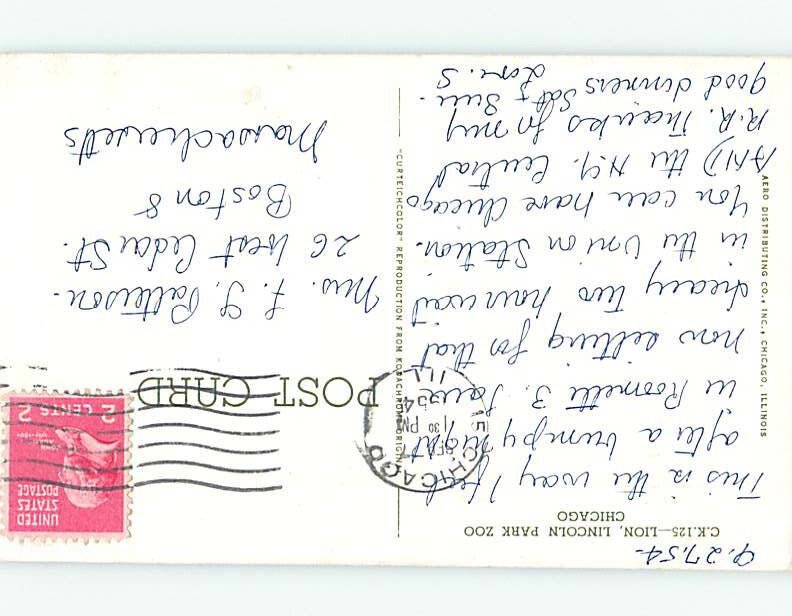 9.27.54
C.K.125—LION, LINCOLN PARK ZOO
CHICAGO
This is the way I feel
after a bumpy night
in Roomette 3.
now settling for that
dreary two hour wait
in the Union Station.
You can have Chicago
AND the N.Y. Central
R.R. Thanks for my
good dinners Sat & Sun.
Love. S
AERO DISTRIBUTING CO., INC., CHICAGO, ILLINOIS
"CURTEICHCOLOR" REPRODUCTION FROM KODACHROME ORIGINAL
CHICAGO
ILL.
SEP 27
1 30 PM
POST CARD
UNITED
STATES
POSTAGE
JOHN ADAMS
2 CENTS 2
Mrs. F. S. Patterson.
26 West Cedar St.
Boston 8
Massachusetts